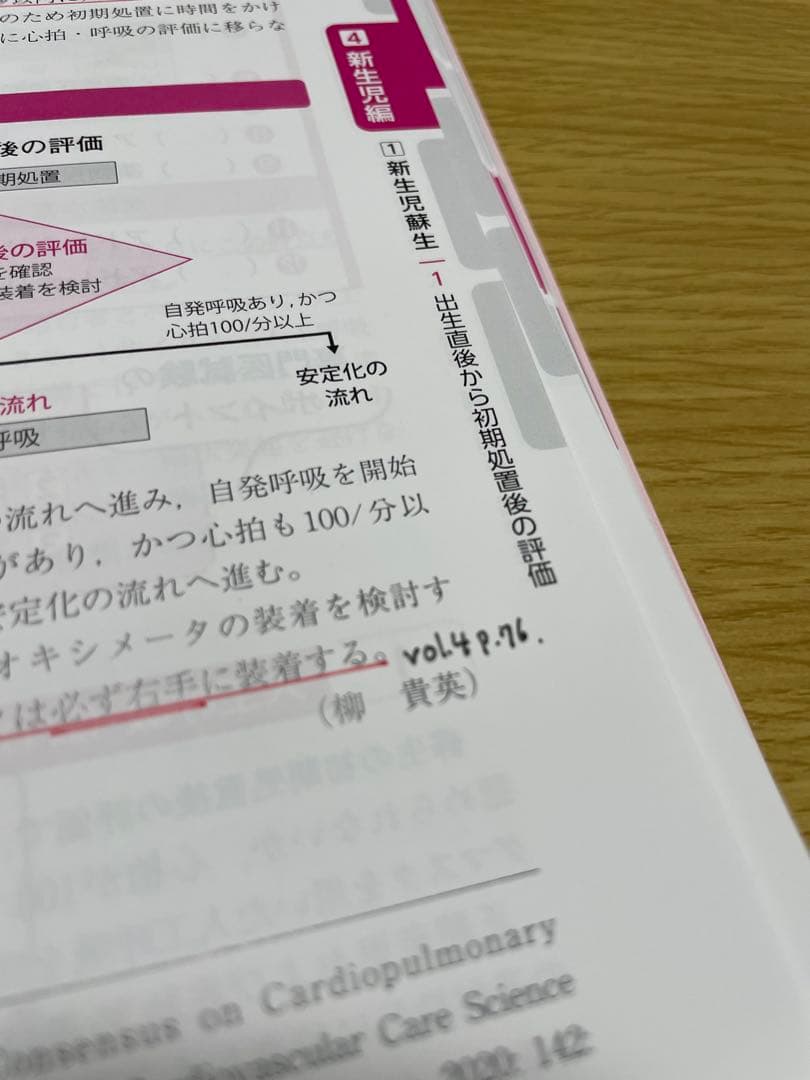 のため初期処置に時間をかけ
に心拍・呼吸の評価に移らな
4 新生児編
1 新生児蘇生 1 出生直後から初期処置後の評価
後の評価
期処置
後の評価
を確認
装着を検討
自発呼吸あり,かつ
心拍100/分以上
安定化の
流れ
流れ
呼吸
流れへ進み,自発呼吸を開始
があり,かつ心拍も100/分以
安定化の流れへ進む。
オキシメータの装着を検討す
は必ず右手に装着する。 vol.4 p.76.
(柳 貴英)
Consensus on Cardiopulmonary
Cardiovascular Care Science
2020; 142: